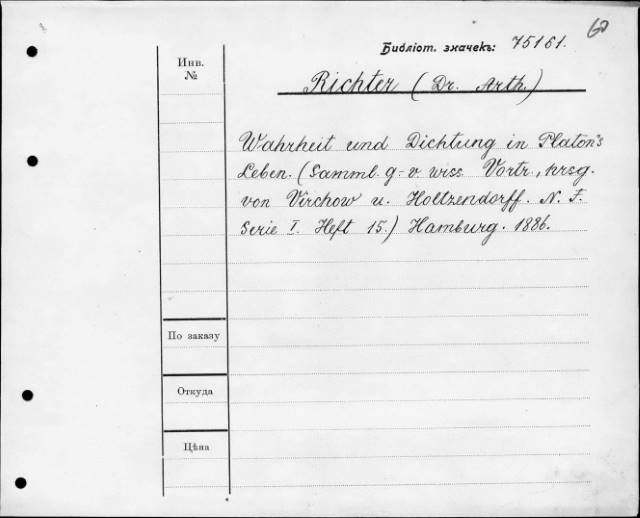 60
Библіот. значекъ: 75161.
Инв.
№
Richter (Dr. Arth.)
Wahrheit und Dichtung in Platon's
Leben. (Samml. g.-v. wiss Vortr., hrsg.
von Virchow u. Holtzendorff. N. F.
Serie I. Heft 15.) Hamburg. 1886.
По заказу
Откуда
Цѣна